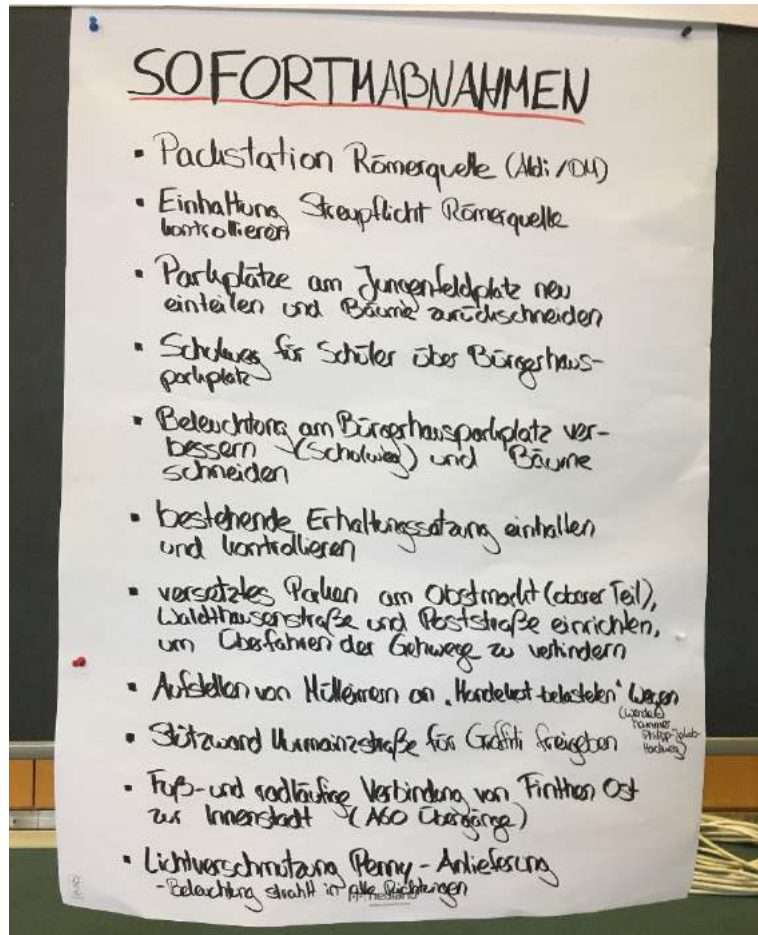 SOFORTMAßNAHMEN
▪ Packstation Römerquelle (Aldi/DM)
▪ Einhaltung Streupflicht Römerquelle
kontrollieren
▪ Parkplätze am Jungenfeldplatz neu
einteilen und Bäume zurückschneiden
▪ Schulweg für Schüler über Bürgerhaus-
parkplatz
▪ Beleuchtung am Bürgerhausparkplatz ver-
bessern (Schulweg) und Bäume
schneiden
▪ bestehende Erhaltungssatzung einhalten
und kontrollieren
▪ versetztes Parken am Obstmarkt (oberer Teil),
Waldthausenstraße und Poststraße einrichten,
um Überfahren der Gehwege zu verhindern
▪ Aufstellen von Mülleimern an „Hundekot-belasteten“ Wegen
Philipp-Jakob-
▪ Stützwand Kurmainzstraße für Graffiti freigeben
▪ Fuß- und radläufige Verbindung von Finthen Ost
zur Innenstadt (A60 Übergänge)
▪ Lichtverschmutzung Penny-Anlieferung
- Beleuchtung strahlt in alle Richtungen